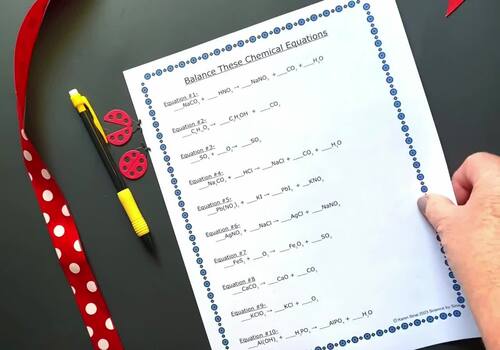 Balance These Chemical Equations
Equation #1-
___NaCO₃ + ___ HNO₃→ ___NaNO₃ + ___CO₂ + ___H₂O
Equation #2-
___C₆H₁₂O₆→ ___C₂H₅OH + ___CO₂
Equation #3-
___SO₂ + ___O₂→ ___SO₃
Equation #4-
___Na₂CO₃ + ___HCl → ___NaCl + ___CO₂ + ___H₂O
Equation #5-
___Pb(NO₃)₂ + ___KI → ___PbI₂ + ___KNO₃
Equation #6-
___AgNO₃ + ___NaCl → ___AgCl + ___NaNO₃
Equation #7
___FeS₂ + ___O₂ → ___Fe₂O₃ + ___SO₂
Equation #8
___CaCO₃ → ___CaO + ___CO₂
Equation #9-
___KClO₃ → ___KCl + ___O₂
Equation #10-
___Al(OH)₃ + ___H₃PO₄ → ___AlPO₄ + ___H₂O
© Karen Sinai 2023 Science by Sinai